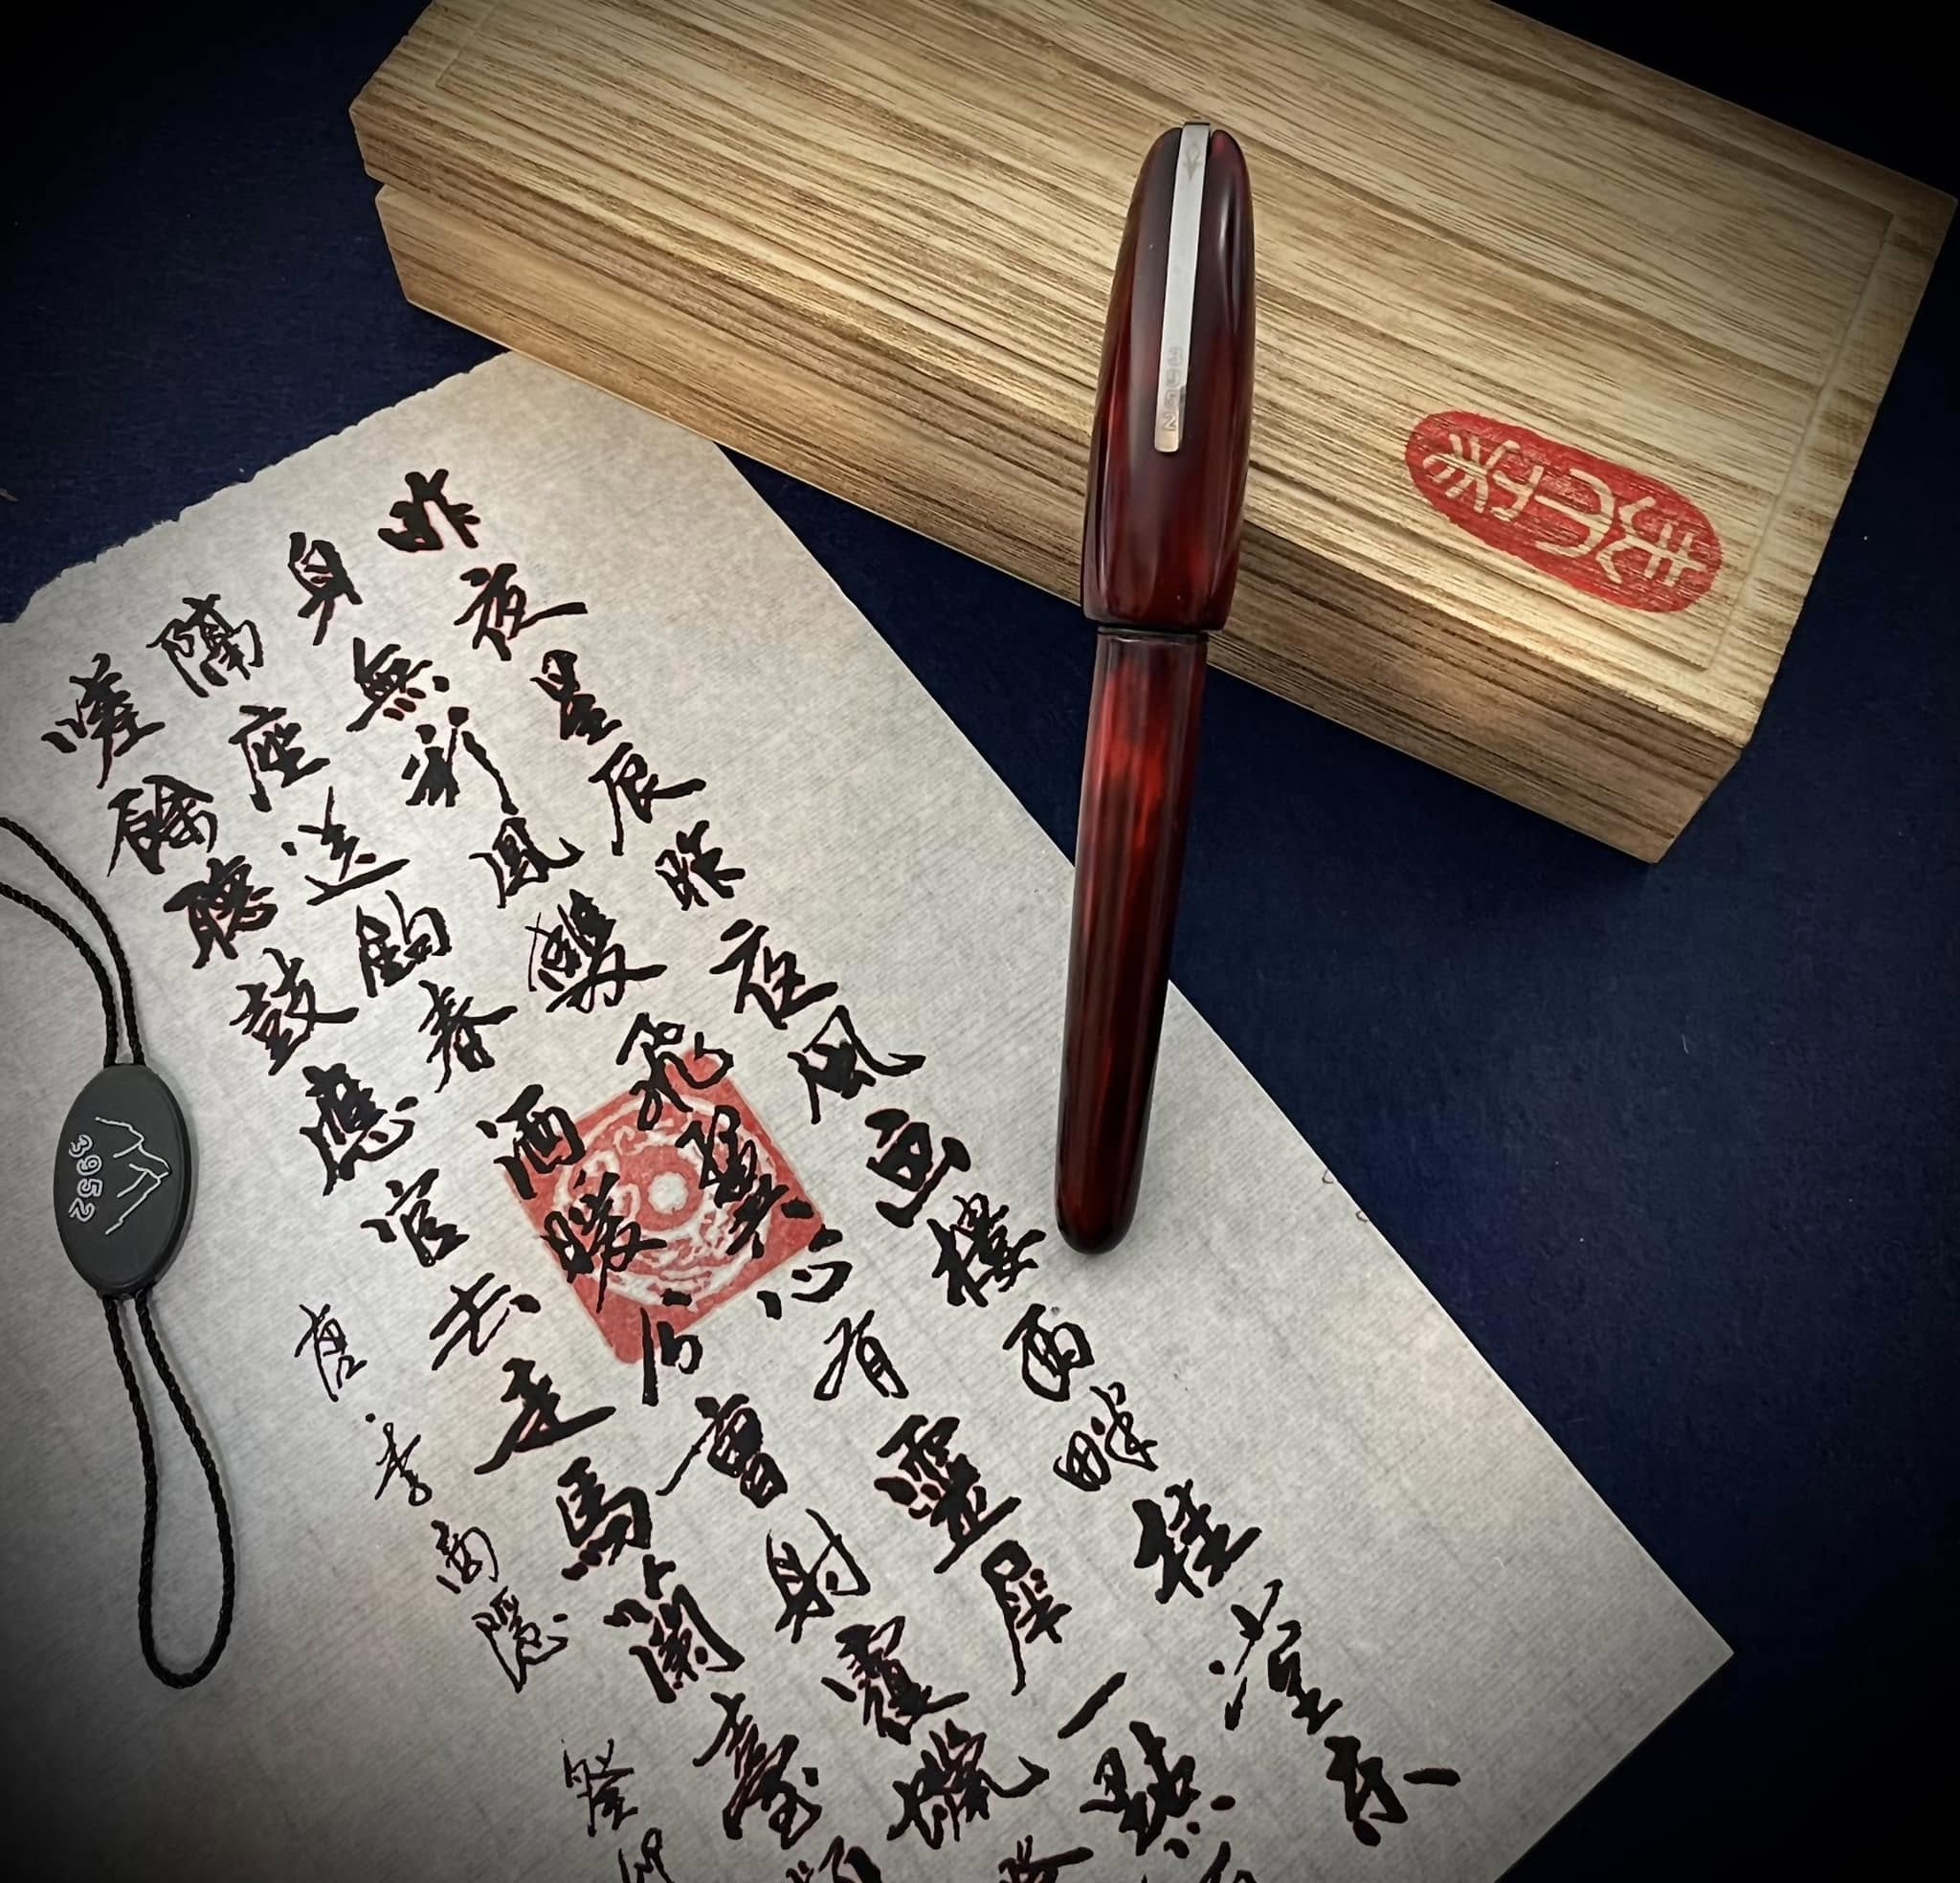 昨夜星辰昨夜風画樓西畔桂堂东
身無彩鳳雙飛翼心有靈犀一點
隔座送鈎春酒暖分曹射覆蠟
嗟餘聽鼓應官去走馬蘭臺
唐李商隱癸卯
3952
3952